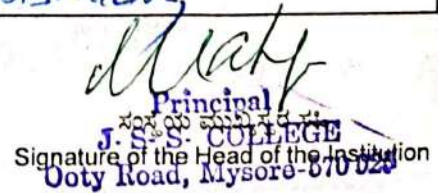 Principal
ಸಂಸ್ಥೆಯ ಮುಖ್ಯಸ್ಥರ ಸಹಿ
J. S. S. COLLEGE
Signature of the Head of the Institution
Ooty Road, Mysore-570 025